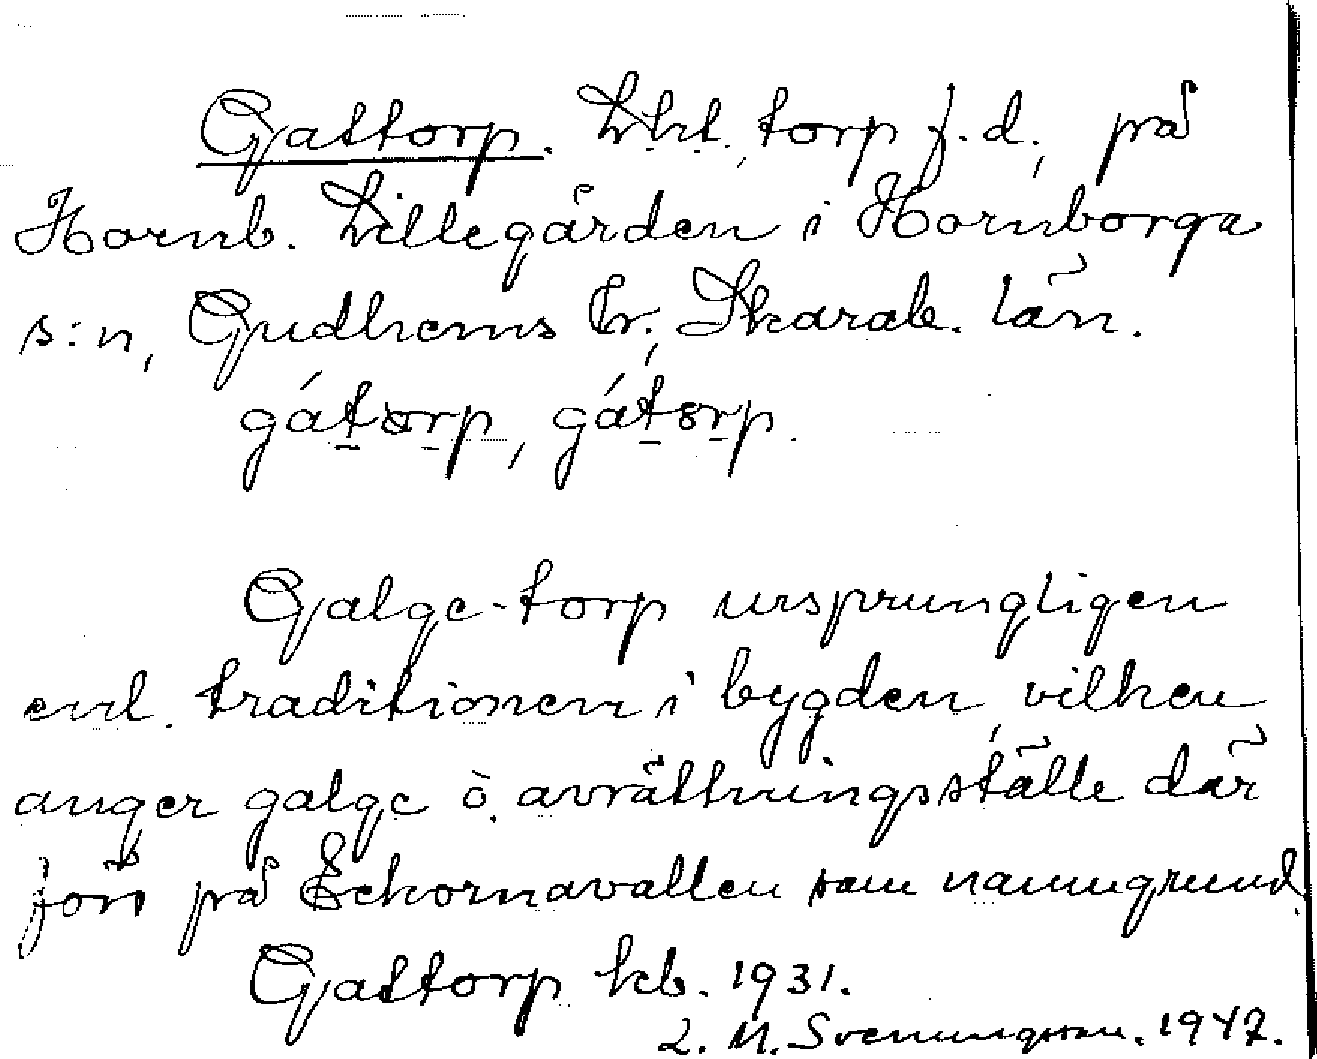 Gattorp. Lht., torp f.d., på
Hornb. Lillegården i Hornborga
s:n, Gudhems hr., Skarab. län.
gátorp, gátorp.
Galge-torp ursprungligen
enl. traditionen i bygden, vilken
anger galge o. avrättningsställe där
förr på Ekornavallen som namngrund.
Gattorp kb. 1931.
L. M. Svenungsson. 1947.